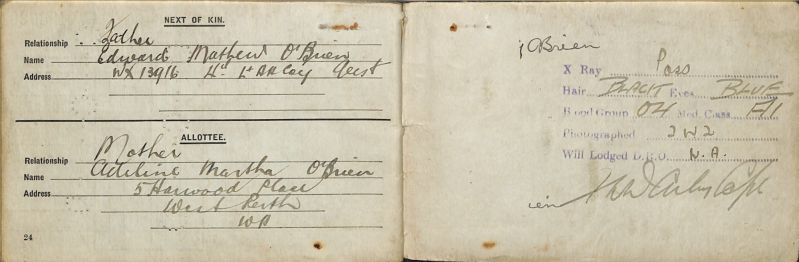 NEXT OF KIN.
Relationship Father
Name Edward Mathew O'Brien
Address WX 13916 4th Lt AA Coy
ALLOTTEE.
Relationship Mother
Name Adeline Martha O'Brien
Address 5 Harwood Place
West Perth
WA
24
O'Brien
X Ray Pass
Hair BLACK Eyes BLUE
Blood Group O4 Med. Class
Photographed 2W2
Will Lodged D.R.O. N.A.